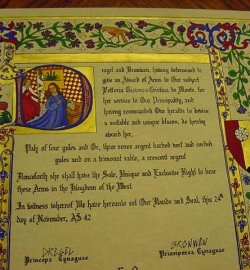 and Bronwen, having determined to
give an Award of Arms to Our subject
Cristina de Monte, for
her service to Our Principality, and
having commanded Our heralds to devise
a suitable and unique blazon, do hereby
award her,
Paly of four gules and Or, three roses argent barbed vert and seeded
gules and on a trimount sable, a crescent argent
Henceforth she shall have the Sole, Unique and Exclusive Right to bear
these Arms in the Kingdom of the West.
In witness whereof We have hereunto set Our Hands and Seal, this 24th
day of November, AS 42
BRONWEN
Princeps Cynaguae
Principessa Cynaguae